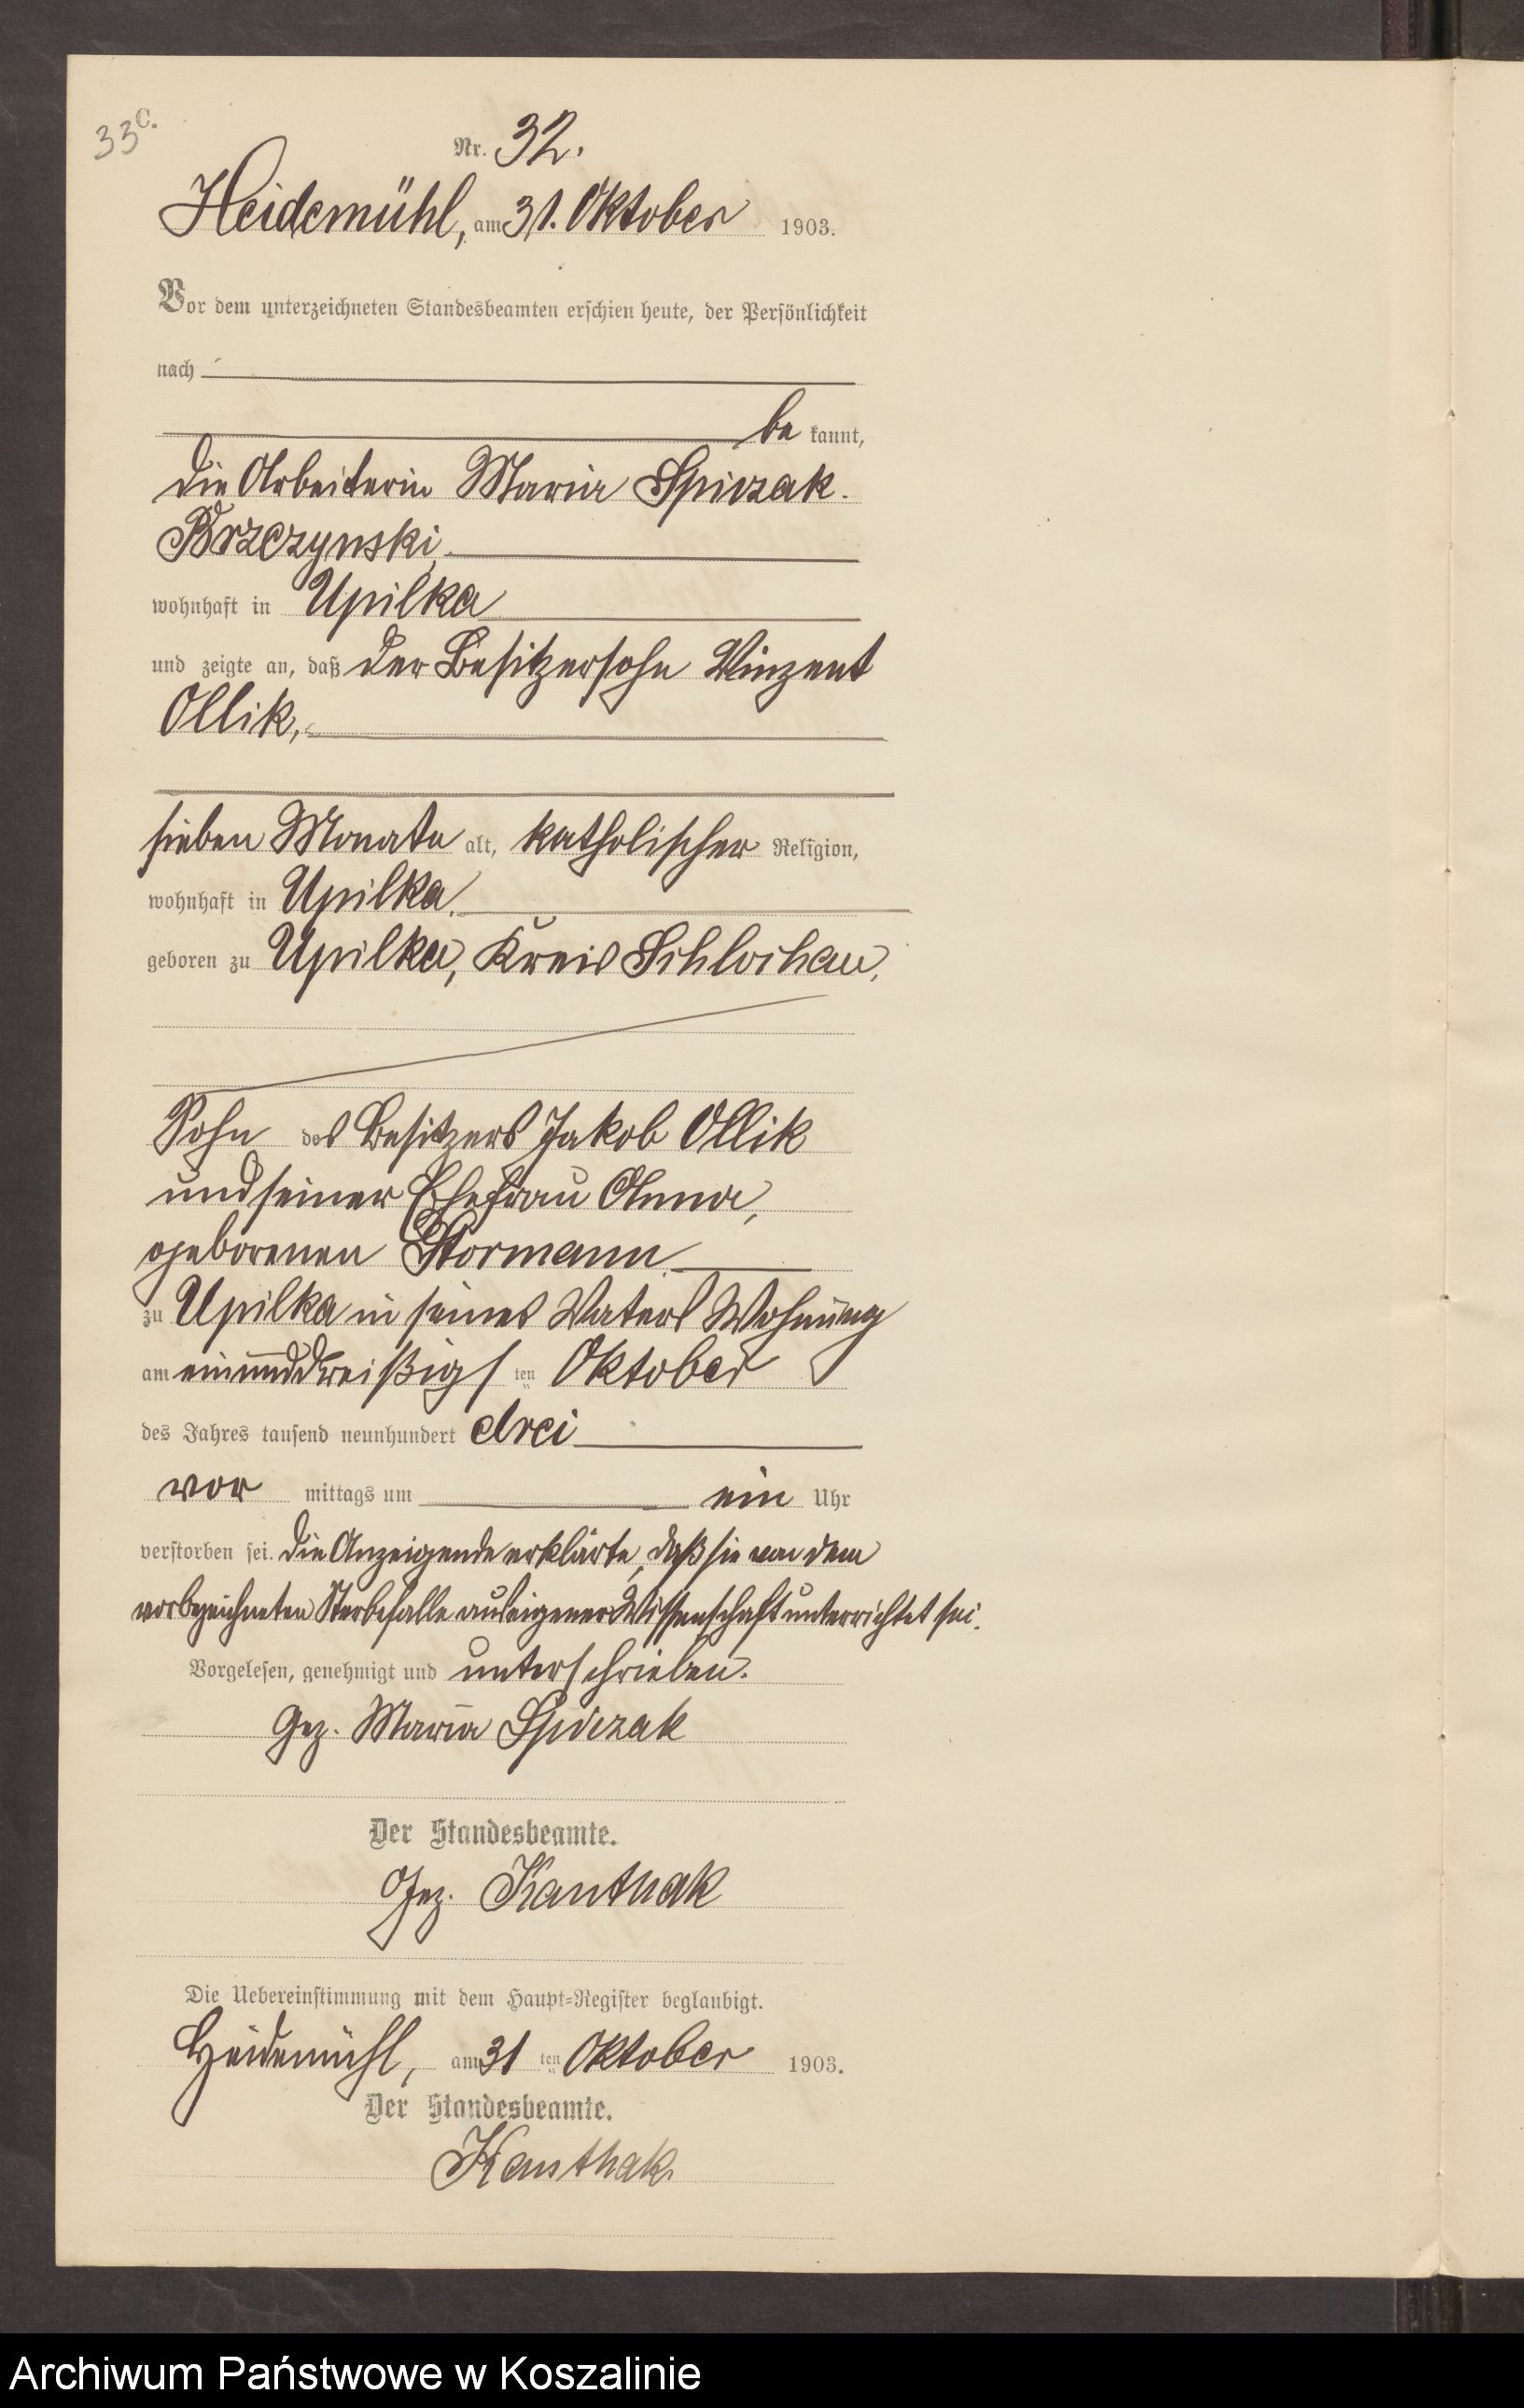 33
C.
Nr. 32.
Heidemühl, am 31. Oktober 1903.
Vor dem unterzeichneten Standesbeamten erschien heute, der Persönlichkeit
nach
be kannt,
die Arbeiterin Maria Spiczak.
Brzezynski,
wohnhaft in Upilka
und zeigte an, daß der Besitzersohn Vinzent
Ollik,
sieben Monate alt, katholischer Religion,
wohnhaft in Upilka,
geboren zu Upilka, Kreis Schlochau,
Sohn des Besitzers Jakob Ollik
und seiner Ehefrau Anna,
geborenen Stormann
zu Upilka in seines Vaters Wohnung
am einunddreißigsten Oktober
des Jahres tausend neunhundert drei
vor mittags um ein Uhr
verstorben sei. Die Anzeigende erklärte, daß sie von dem
vorbezeichneten Sterbefalle aus eigener Wissenschaft unterrichtet sei.
Vorgelesen, genehmigt und unterschrieben.
Gez. Maria Spiczak
Der Standesbeamte.
Gez. Kanthak
Die Uebereinstimmung mit dem Haupt-Register beglaubigt.
Heidemühl, am 31 ten Oktober 1903.
Der Standesbeamte.
Kanthak
Archiwum Państwowe w Koszalinie